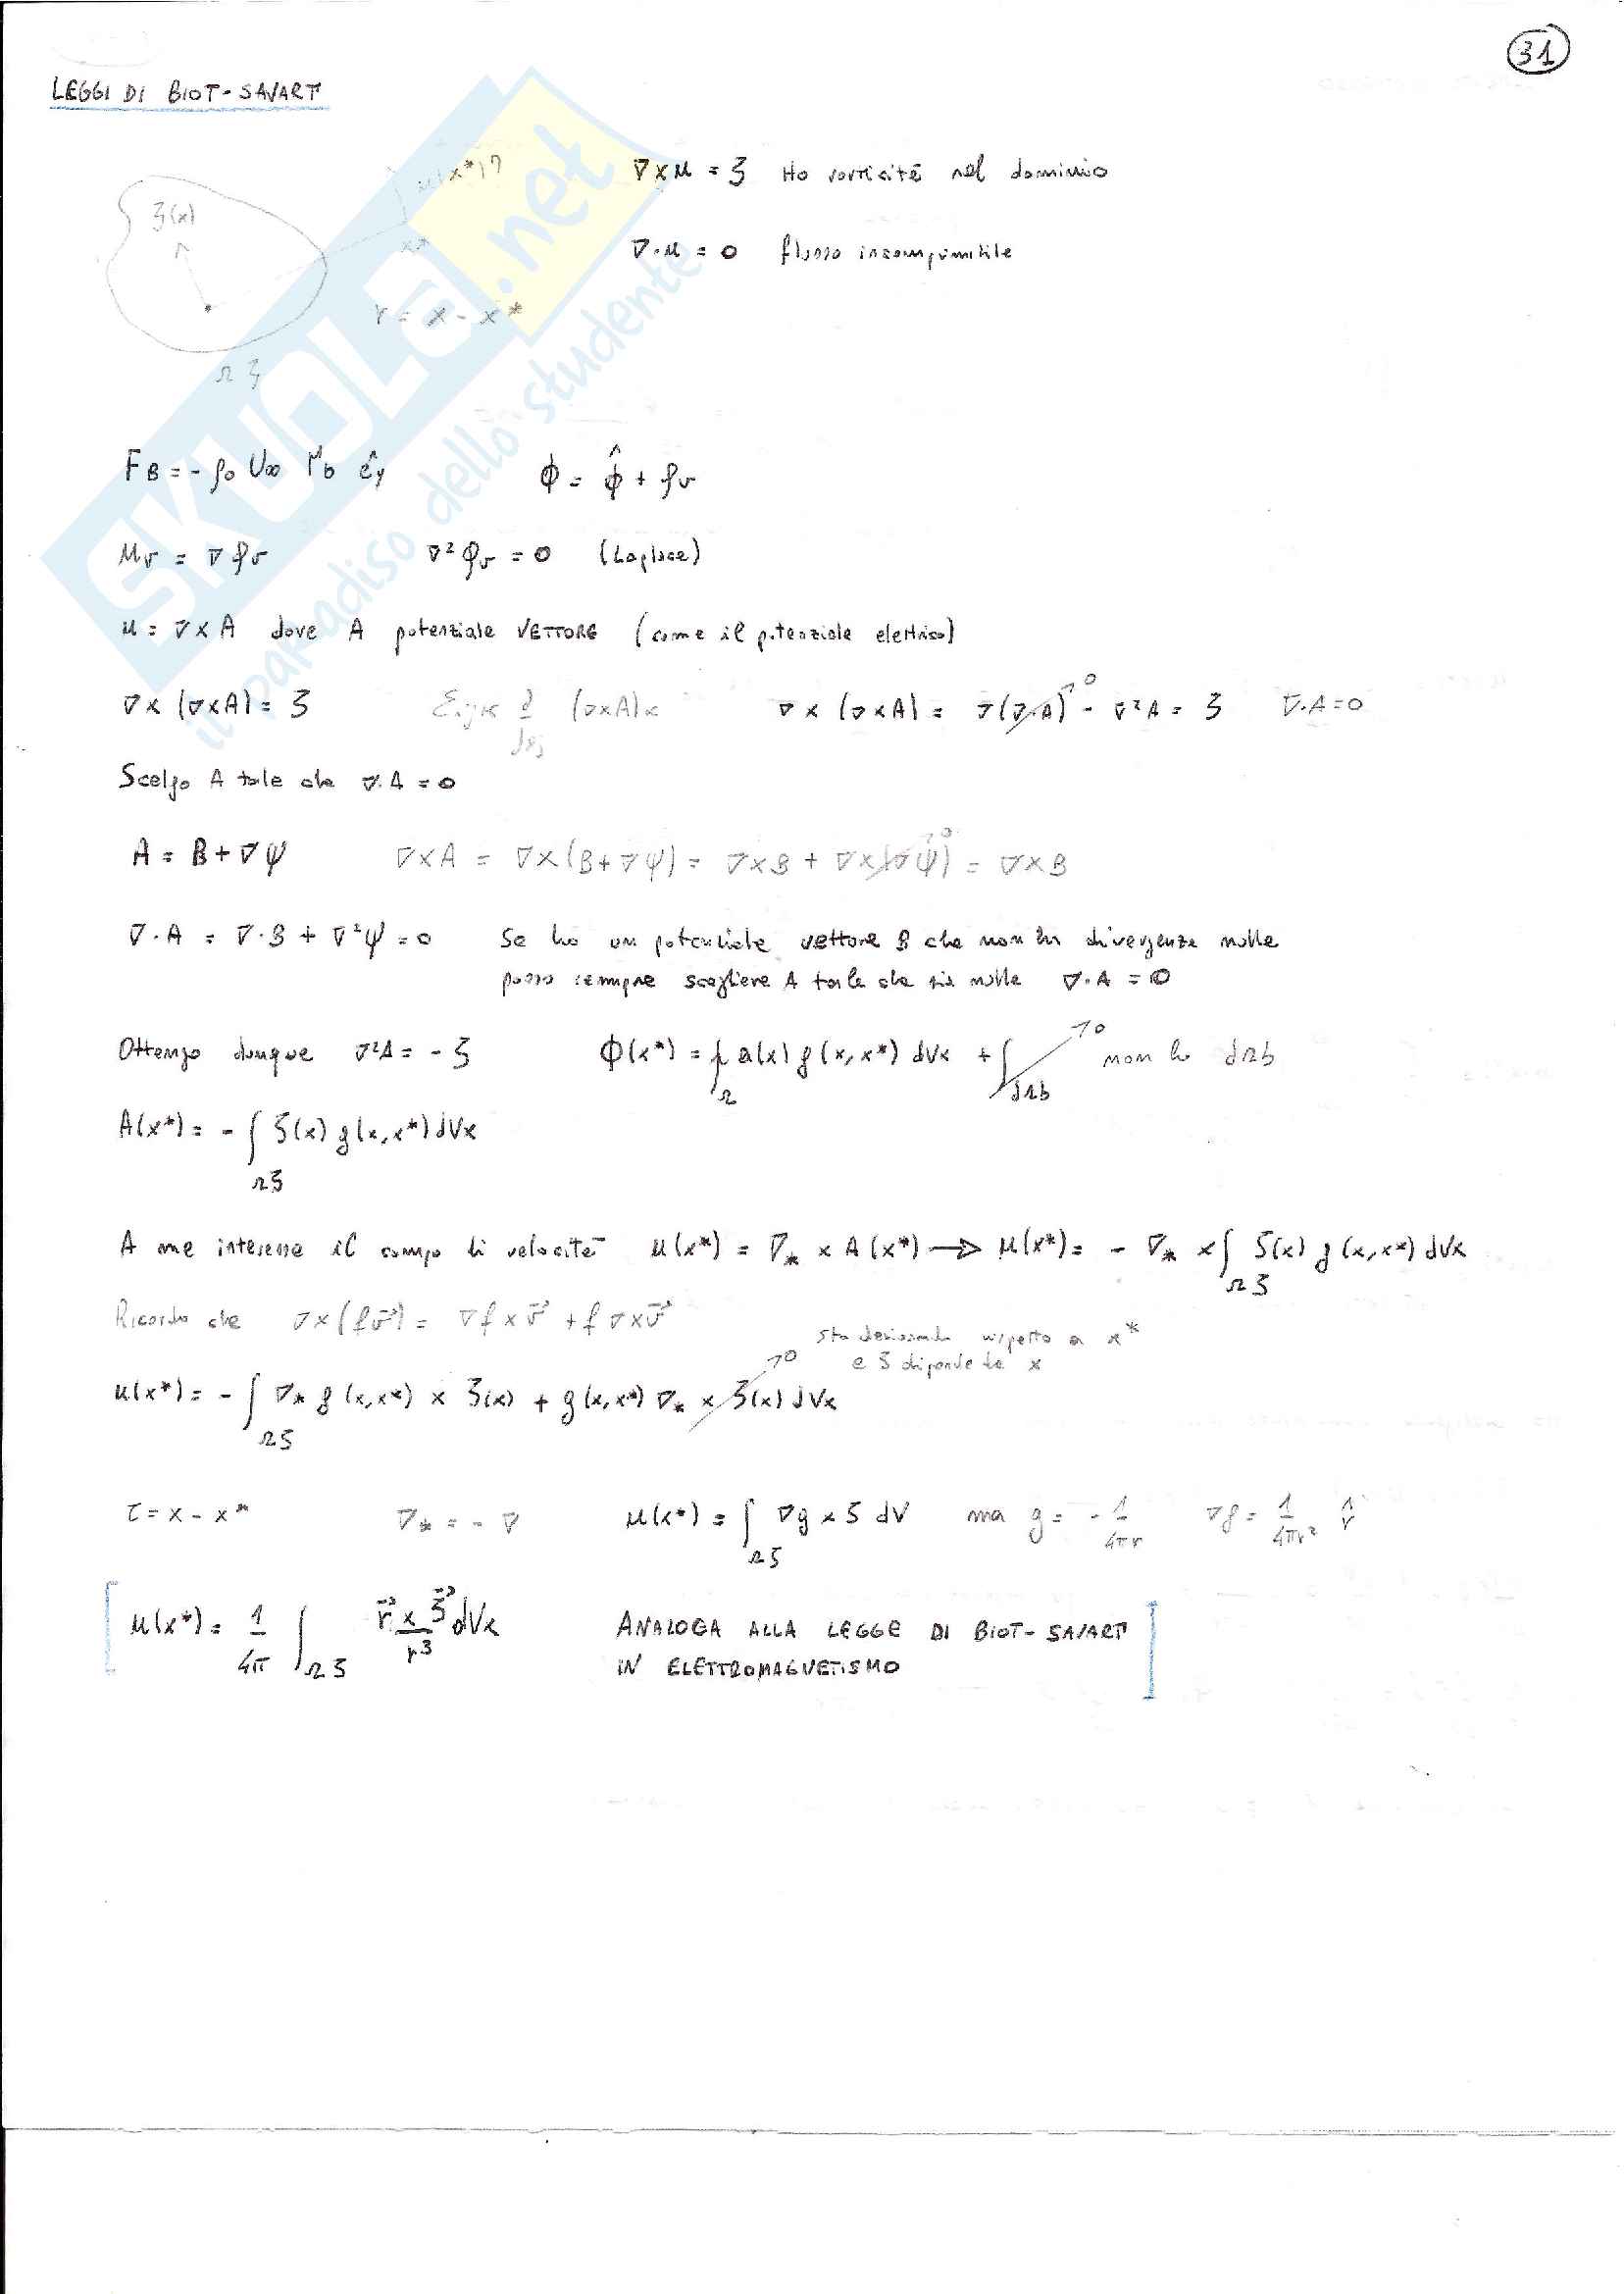 31
LEGGI DI BIOT-SAVART
ζ(x) u(x*)? ∇×u = ζ Ho vorticità nel dominio
x*
∇·u = 0 flusso incomprimibile
r = x - x*
Ωζ
SKUOLA.net
il paradiso dello studente
F_B = - ρ0 U∞ Γb êy ϕ = ϕ̂ + φv
uv = ∇φv ∇²φv = 0 (Laplace)
u = ∇×A dove A potenziale VETTORE (come il potenziale elettrico)
∇×(∇×A) = ζ εijk ∂/∂xj (∇×A)k ∇×(∇×A) = ∇(∇·A)→0 - ∇²A = ζ ∇·A=0
Scelgo A tale che ∇·A = 0
A = B + ∇ψ ∇×A = ∇×(B+∇ψ) = ∇×B + ∇×(∇ψ)→0 = ∇×B
∇·A = ∇·B + ∇²ψ = 0 Se ho un potenziale vettore B che non ha divergenza nulla
posso sempre scegliere A tale che sia nulla ∇·A = 0
Ottengo dunque ∇²A = - ζ ϕ(x*) = ∫Ω a(x) g(x,x*) dVx + ∫∂Ωb →0 non ho ∂Ωb
A(x*) = - ∫Ωζ ζ(x) g(x,x*) dVx
A me interessa il campo di velocità u(x*) = ∇* × A(x*) → u(x*) = - ∇* × ∫Ωζ ζ(x) g(x,x*) dVx
Ricordo che ∇×(f v⃗) = ∇f × v⃗ + f ∇×v⃗
sto derivando rispetto a x*
e ζ dipende da x
u(x*) = - ∫Ωζ ∇* g(x,x*) × ζ(x) + g(x,x*) ∇* × ζ(x)→0 dVx
r = x - x* ∇* = - ∇ u(x*) = ∫Ωζ ∇g × ζ dV ma g = - 1/4πr ∇g = 1/4πr² r̂
[ u(x*) = 1/4π ∫Ωζ r⃗ × ζ⃗ / r³ dVx ANALOGA ALLA LEGGE DI BIOT-SAVART ]
IN ELETTROMAGNETISMO